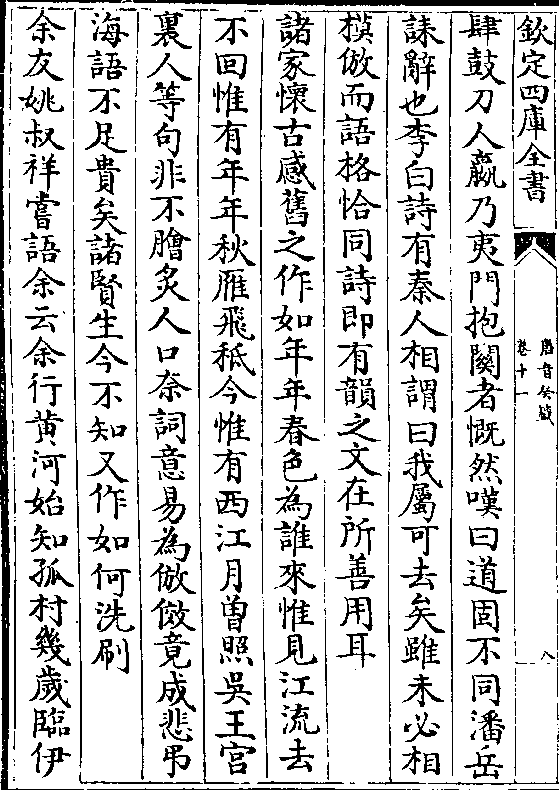 欽定四庫全書
唐音癸籖
卷十一
八
肆鼓刀人嬴乃夷門抱關者慨然嘆曰道固不同潘岳
誄辭也李白詩有秦人相謂曰我屬可去矣雖未必相
模倣而語格恰同詩即有韻之文在所善用耳
諸家懷古感舊之作如年年春色為誰來惟見江流去
不回惟有年年秋雁飛秪今惟有西江月曾照吳王宫
裏人等句非不膾炙人口奈詞意易為倣倣竟成悲弔
海語不足貴矣諸賢生今不知又作如何洗刷
余友姚叔祥嘗語余云余行黄河始知孤村幾歲臨伊